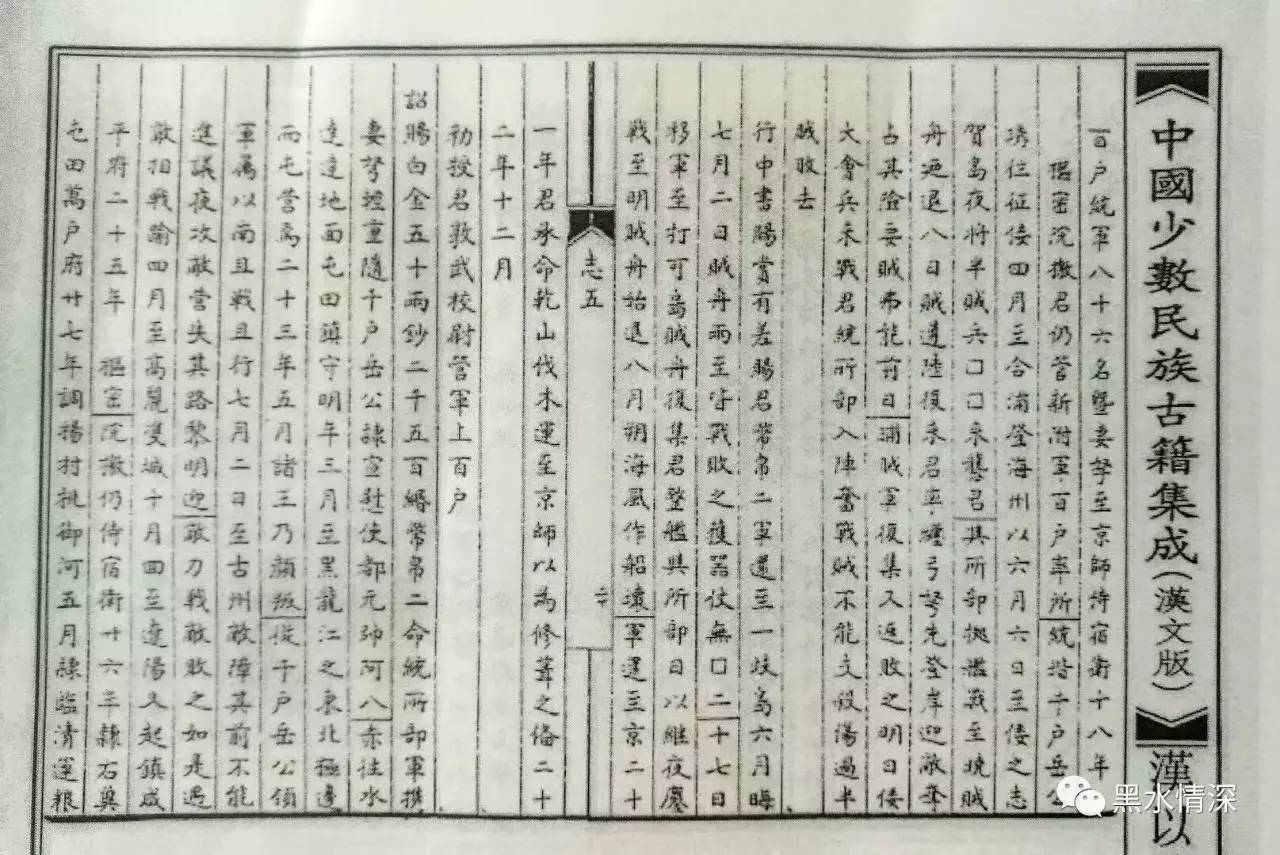 中國少數民族古籍集成(漢文版)
漢以
百户統軍八十六名暨妻孥至京師侍宿衛十八年
樞密院檄君仍管新附軍百户率所統諧千户岳公
琇往征倭四月三合浦登海州以六月六日至倭之志
賀島夜將半賊兵口口口來襲君其所部拠艦戰至曉賊
舟廼退八日賊遵陸復来君率纏弓弩先登岸迎敵奪
占其險要賊弗能前日晡賊軍復集又返敗之明日倭
大會兵来戰君統所部入陣奮戰賊不能支殺傷過半
賊敗去
行中書賜賞有差賜君幣帛二軍還至一岐島六月晦
七月二日賊舟兩至皆戰敗之獲器仗無口二十七日
移軍至打可島賊舟復集君整艦與所部日以継夜鏖
戰至明賊舟始退八月朔海風作船壞軍還至京二十
志五
一年君承命乾山伐木運至京師以為修葺之備二十
二年十二月
初授君敦武校尉管軍上百户
詔賜白金五十兩鈔二千五百緡幣帛二命統所部軍携
妻孥輜重隨千户岳公隷宣慰使都元帥阿八赤往水
達達地面屯田鎮守明年三月至黑龍江之東北極邊
而屯营焉二十三年五月諸王乃顔叛從千户岳公領
軍属以南且戰且行七月二日至古州敵障其前不能
進議夜攻敵营失其路黎明迎敵刀戰敵敗之如是遇
敵相戰踰四月至高麗雙城十月回至遼陽又起鎮咸
平府二十五年　樞密院檄仍侍宿衛十六年隷右翼
屯田萬户府廿七年調揚村挑御河五月隷臨清運粮
黑水情深